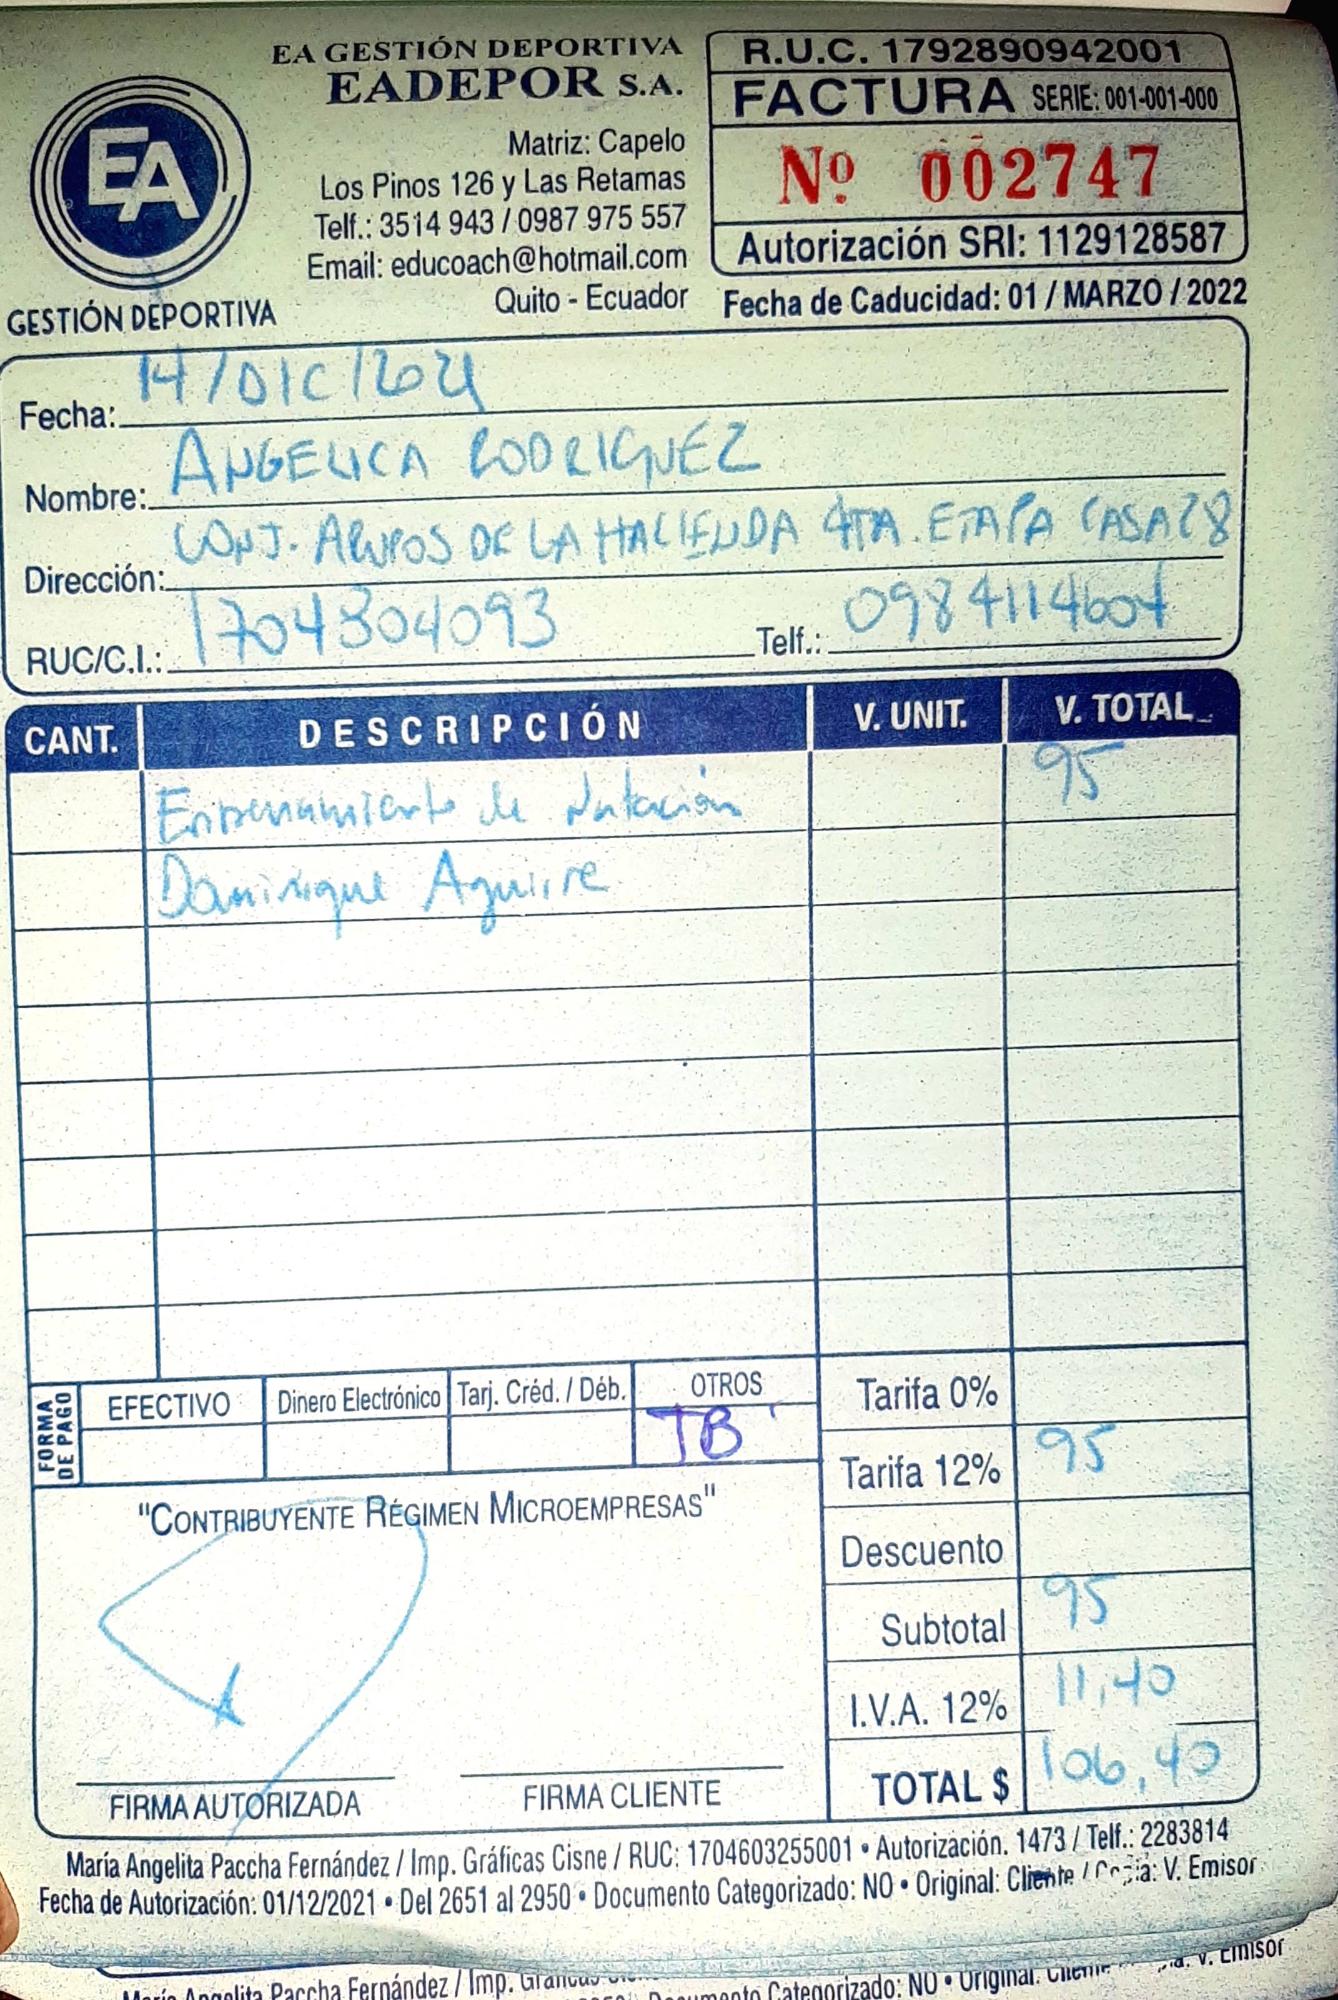 EA GESTIÓN DEPORTIVA
EADEPOR S.A.
Matriz: Capelo
Los Pinos 126 y Las Retamas
Telf.: 3514 943 / 0987 975 557
Email: educoach@hotmail.com
Quito - Ecuador
EA
GESTIÓN DEPORTIVA
R.U.C. 1792890942001
FACTURA SERIE: 001-001-000
Nº 002747
Autorización SRI: 1129128587
Fecha de Caducidad: 01 / MARZO / 2022
Fecha: 14/DIC/2021
Nombre: ANGELICA RODRIGUEZ
Dirección: CONJ. ARUPOS DE LA HACIENDA 4TA. ETAPA CASA 28
RUC/C.I.: 1704304093 Telf.: 0984114604
CANT. DESCRIPCIÓN V. UNIT. V. TOTAL
Entrenamiento de Natación 95
Dominique Aguirre
FORMA DE PAGO
EFECTIVO Dinero Electrónico Tarj. Créd. / Déb. OTROS
TB
Tarifa 0%
Tarifa 12% 95
Descuento
Subtotal 95
I.V.A. 12% 11,40
TOTAL $ 106,40
"CONTRIBUYENTE RÉGIMEN MICROEMPRESAS"
FIRMA AUTORIZADA FIRMA CLIENTE
María Angelita Paccha Fernández / Imp. Gráficas Cisne / RUC: 1704603255001 • Autorización. 1473 / Telf.: 2283814
Fecha de Autorización: 01/12/2021 • Del 2651 al 2950 • Documento Categorizado: NO • Original: Cliente / Copia: V. Emisor
María Angelita Paccha Fernández / Imp. Gráficas
Documento Categorizado: NO • Original: Cliente V. Emisor